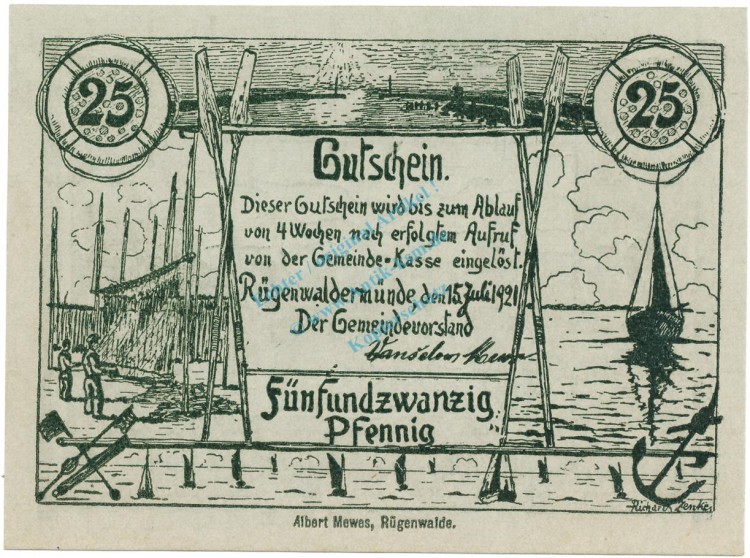 25
25
Gutschein.
Dieser Gutschein wird bis zum Ablauf
von 4 Wochen nach erfolgtem Aufruf
von der Gemeinde-Kasse eingelöst.
Rügenwaldermünde den 15. Juli 1921
Der Gemeindevorstand
Fünfundzwanzig
Pfennig
Richard Zenke
Albert Mewes, Rügenwalde.